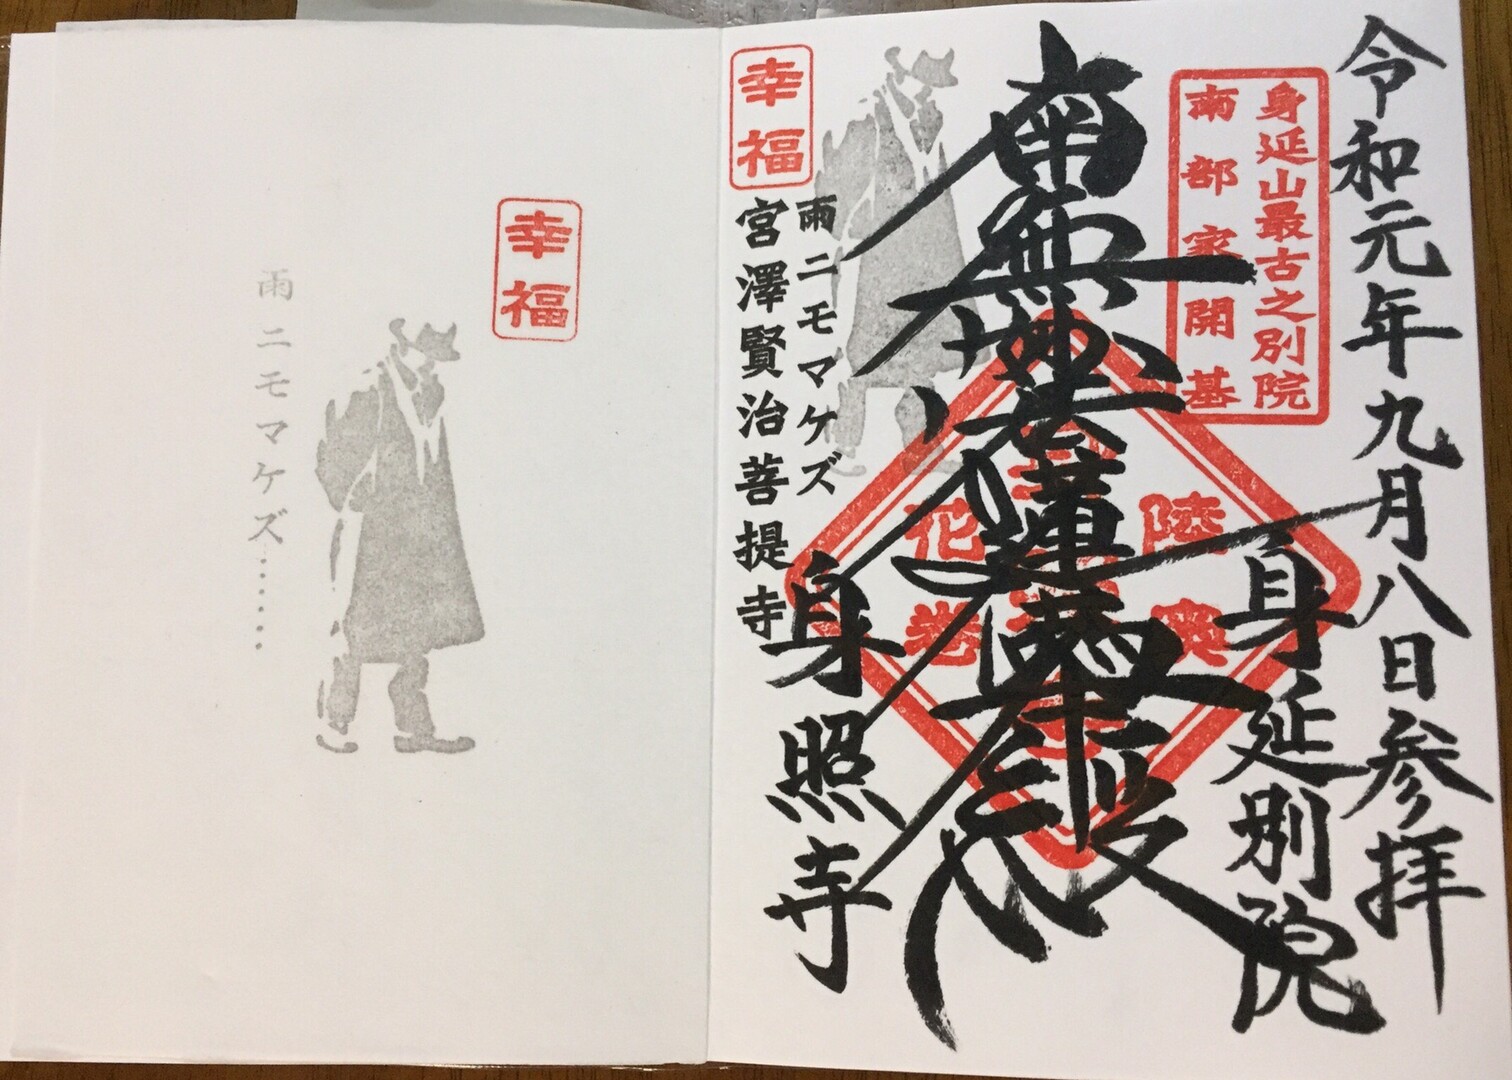 令和元年九月八日参拝
身延別院
身延山最古之別院
南部家開基
南無妙法蓮華経
陸奥
花巻
身照寺
幸福
雨ニモマケズ
宮澤賢治菩提寺
幸福
雨ニモマケズ……